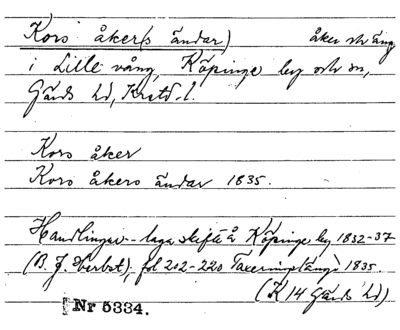 Kors åker(s ändar) åker och äng
i Lille vång, Köpinge by och sn,
Gärds hd, Krstd. l.
Kors åker
Kors åkers ändar 1835.
Handlingar - laga skifte å Köpinge by 1832-37
(B. J. Herbst), fol 202-220 Taxeringslängd 1835.
(K 14 Gärds hd)
Nr 5334.